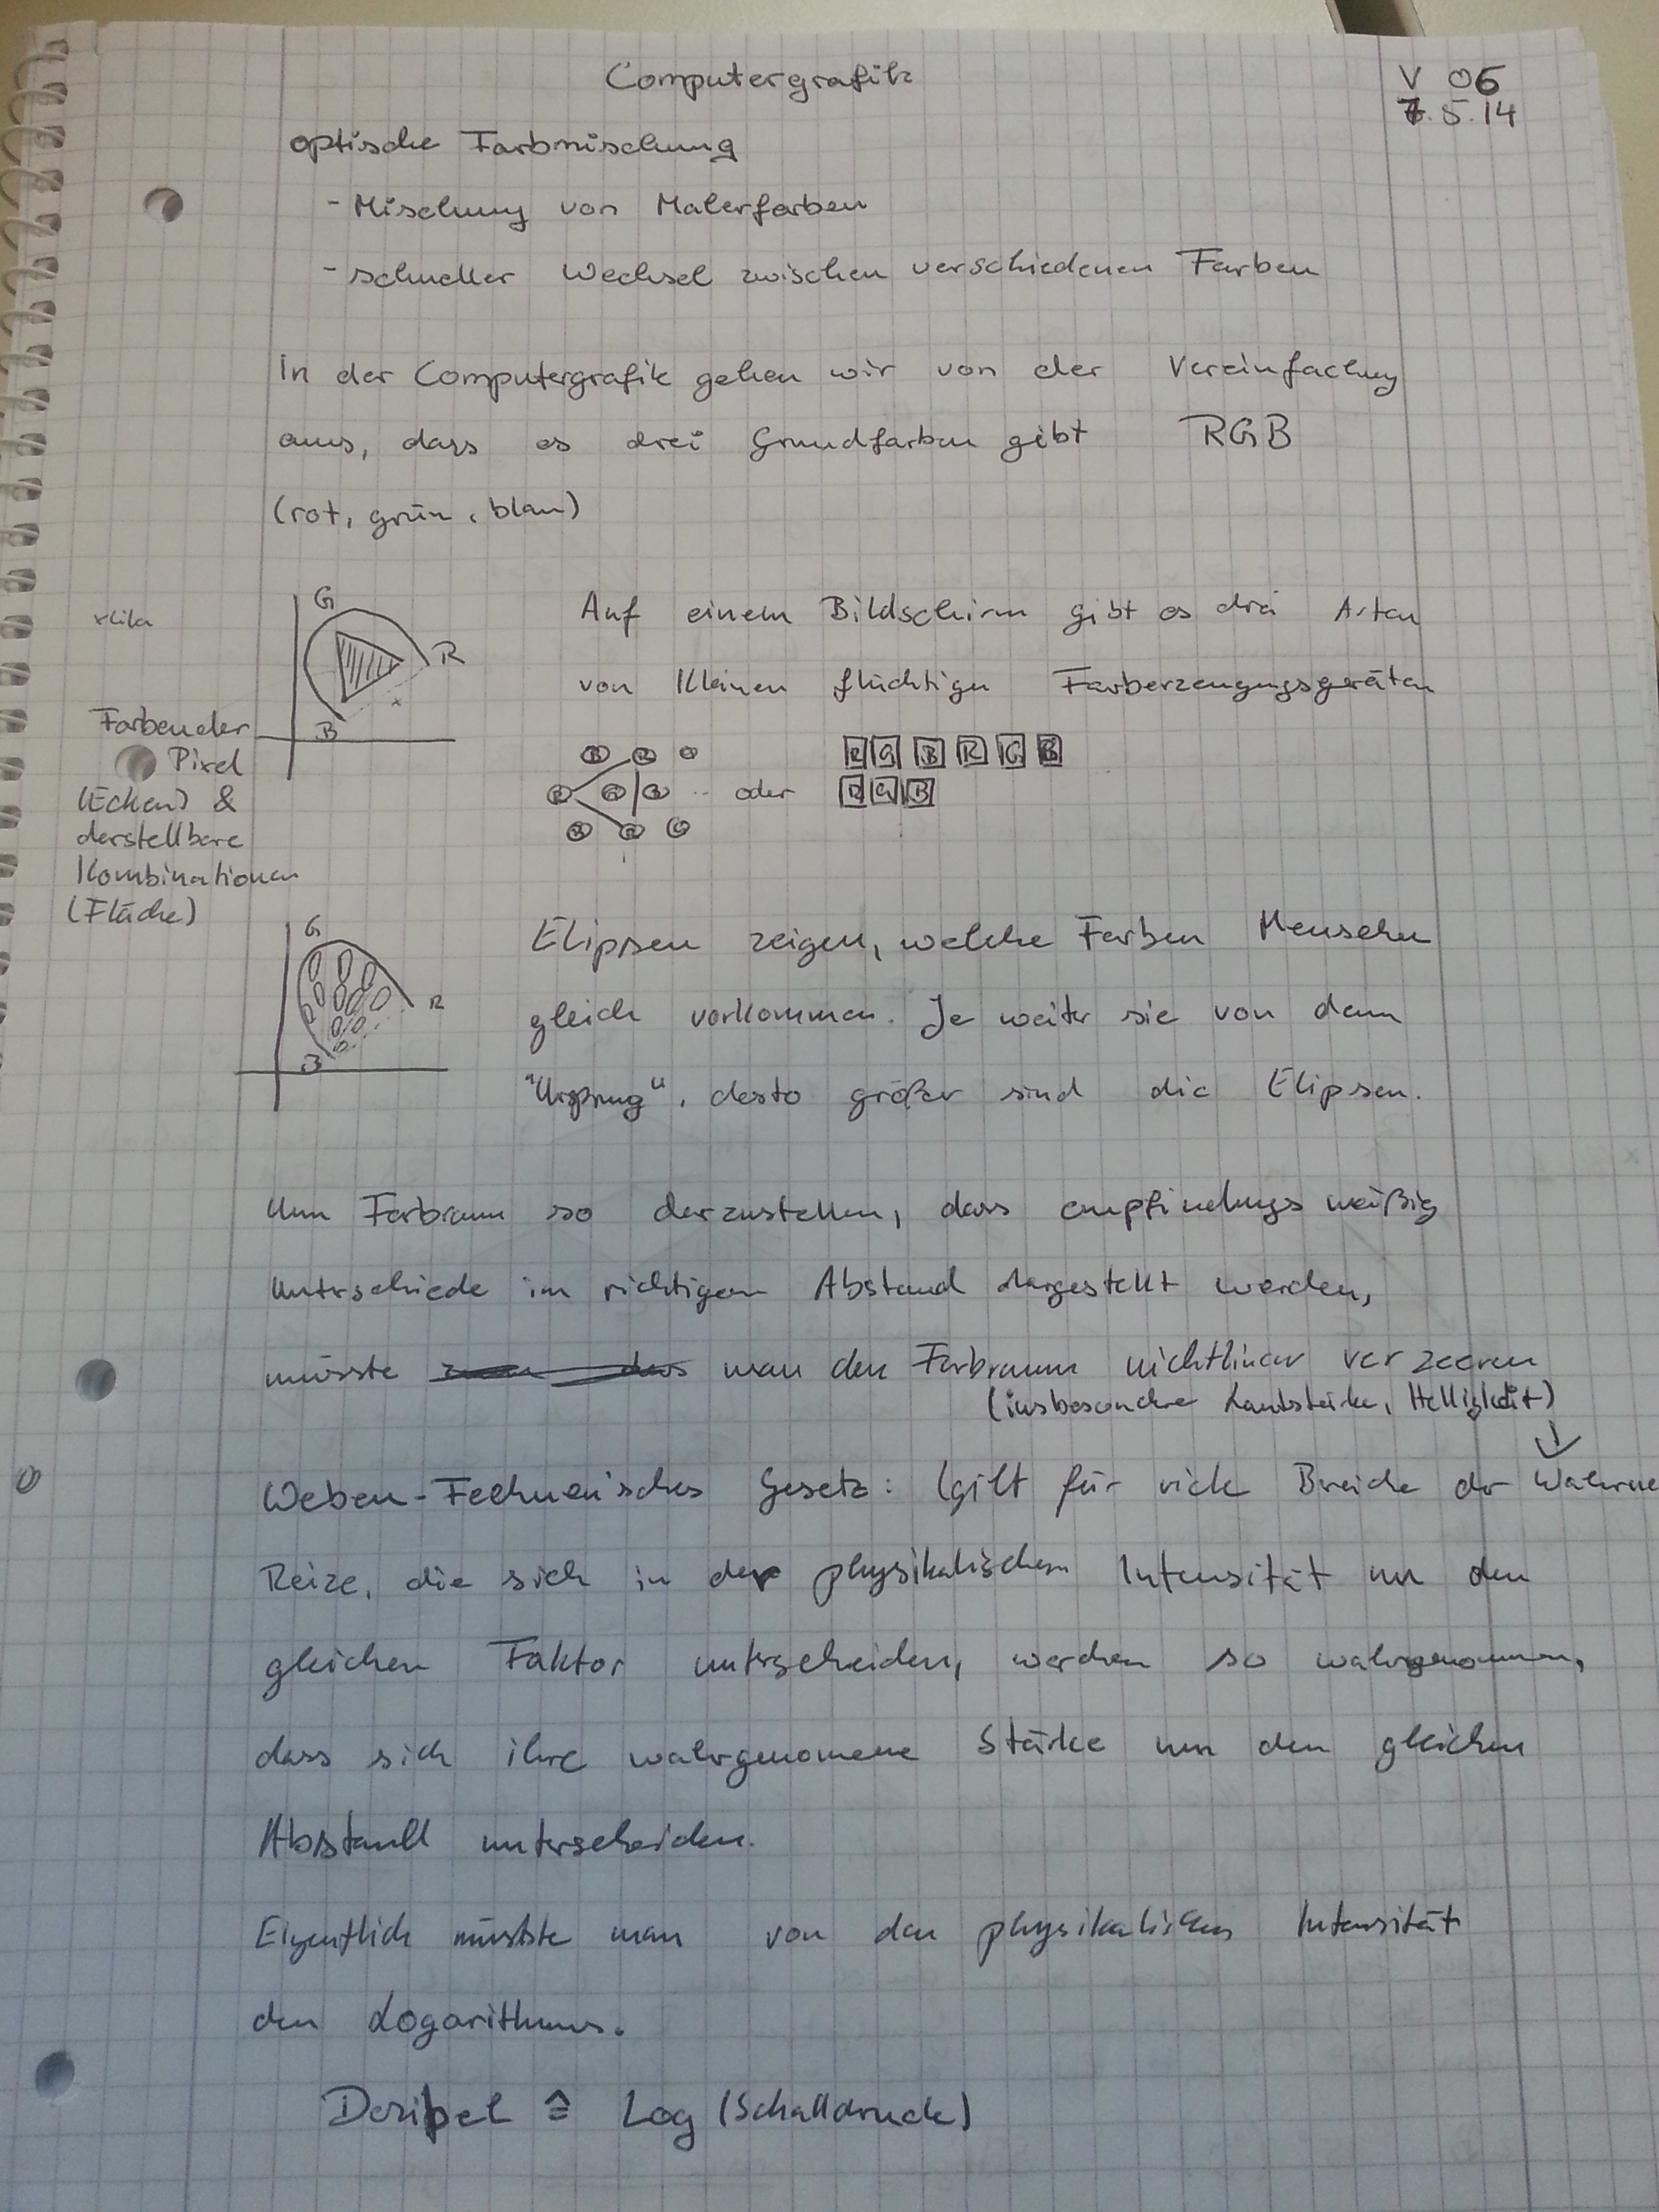 Computergrafik
V 06
7.5.14
optische Farbmischung
- Mischung von Malerfarben
- schneller Wechsel zwischen verschiedenen Farben
In der Computergrafik gehen wir von der Vereinfachung
aus, dass es drei Grundfarben gibt RGB
(rot, grün, blau)
x lila
G
R
B
Farben der
Pixel
(Ecken) &
darstellbare
Kombinationen
(Fläche)
Auf einem Bildschirm gibt es drei Arten
von kleinen flüchtigen Farberzeugungsgeräten
oder
R G B R G B
R G B
G
R
B
Elipsen zeigen, welche Farben Menschen
gleich vorkommen. Je weiter sie von dem
"Ursprung", desto größer sind die Elipsen.
Um Farbraum so darzustellen, dass empfindungsmäßig
Unterschiede im richtigen Abstand dargestellt werden,
müsste man den Farbraum nichtlinear verzerren
(insbesondere Lautstärke, Helligkeit)
Weben-Fechnerisches Gesetz: (gilt für viele Breiche der Wahrne
Reize, die sich in der physikalischen Intensität um den
gleichen Faktor unterscheiden, werden so wahrgenommen,
dass sich ihre wahrgenomene Stärke um den gleichen
Abstand unterscheiden.
Eigentlich müsste man von den physikalischen Intensität
den Logarithmus.
Dezibel ≙ Log (Schalldruck)